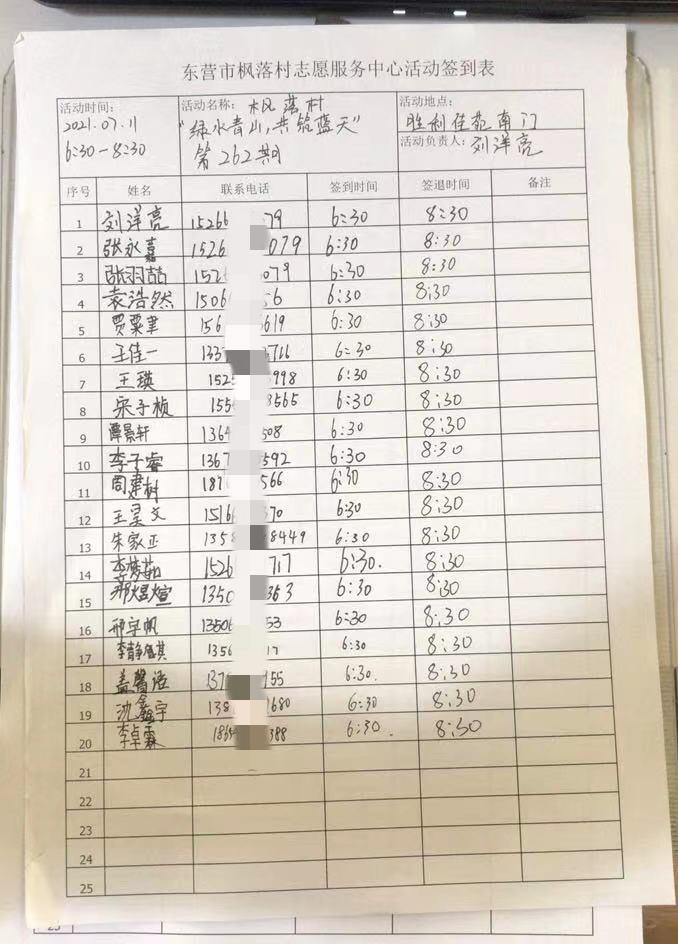 东营市枫落村志愿服务中心活动签到表
活动时间：
2021.07.11
6:30-8:30
活动名称：枫落村
"绿水青山,共筑蓝天"
第262期
活动地点：
胜利佳苑南门
活动负责人：刘洋亮
序号 姓名 联系电话 签到时间 签退时间 备注
1 刘洋亮 15266 79 6:30 8:30
2 张永嘉 1526 079 6:30 8:30
3 张羽喆 152 079 6:30 8:30
4 袁浩然 1506 6 6:30 8:30
5 贾粟聿 156 619 6:30 8:30
6 王佳一 133 716 6:30 8:30
7 王瑛 152 998 6:30 8:30
8 宋子桢 155 3565 6:30 8:30
9 谭景轩 1364 508 6:30 8:30
10 李子睿 1367 592 6:30 8:30
11 周建树 187 566 6:30 8:30
12 王昊文 1516 70 6:30 8:30
13 朱家正 1358 8449 6:30 8:30
14 李 茹 1526 717 6:30. 8:30
15 郑煜煊 1350 363 6:30 8:30
16 邢宇帆 13506 53 6:30 8:30
17 李静 琪 1356 17 6:30 8:30
18 盖馨语 137 155 6:30. 8:30
19 沈鑫宇 138 1680 6:30 8:30
20 李卓霖 186 388 6:30. 8:30
21
22
23
24
25
25